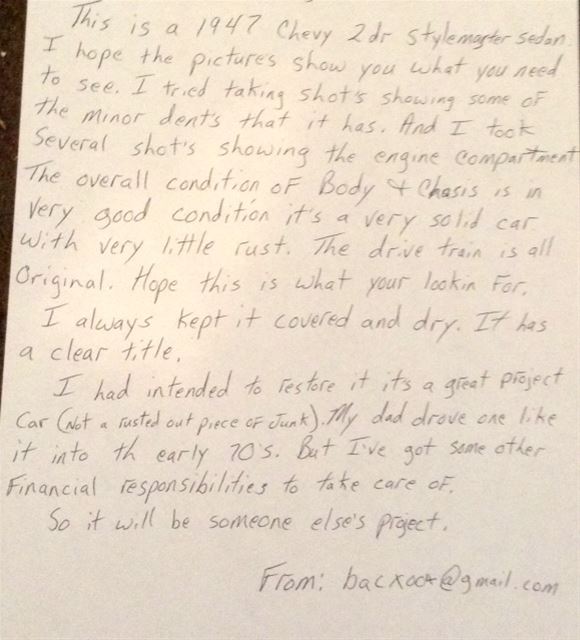 This is a 1947 Chevy 2dr stylemaster sedan.
I hope the pictures show you what you need
to see. I tried taking shot's showing some of
the minor dent's that it has. And I took
Several shot's showing the engine compartment
The overall condition of Body & Chasis is in
very good condition it's a very solid car
with very little rust. The drive train is all
Original. Hope this is what your lookin for.
I always kept it covered and dry. It has
a clear title.
I had intended to restore it it's a great project
Car (Not a rusted out piece of Junk). My dad drove one like
it into th early 70's. But I've got some other
Financial responsibilities to take care of.
So it will be someone else's project.
From: @gmail.com